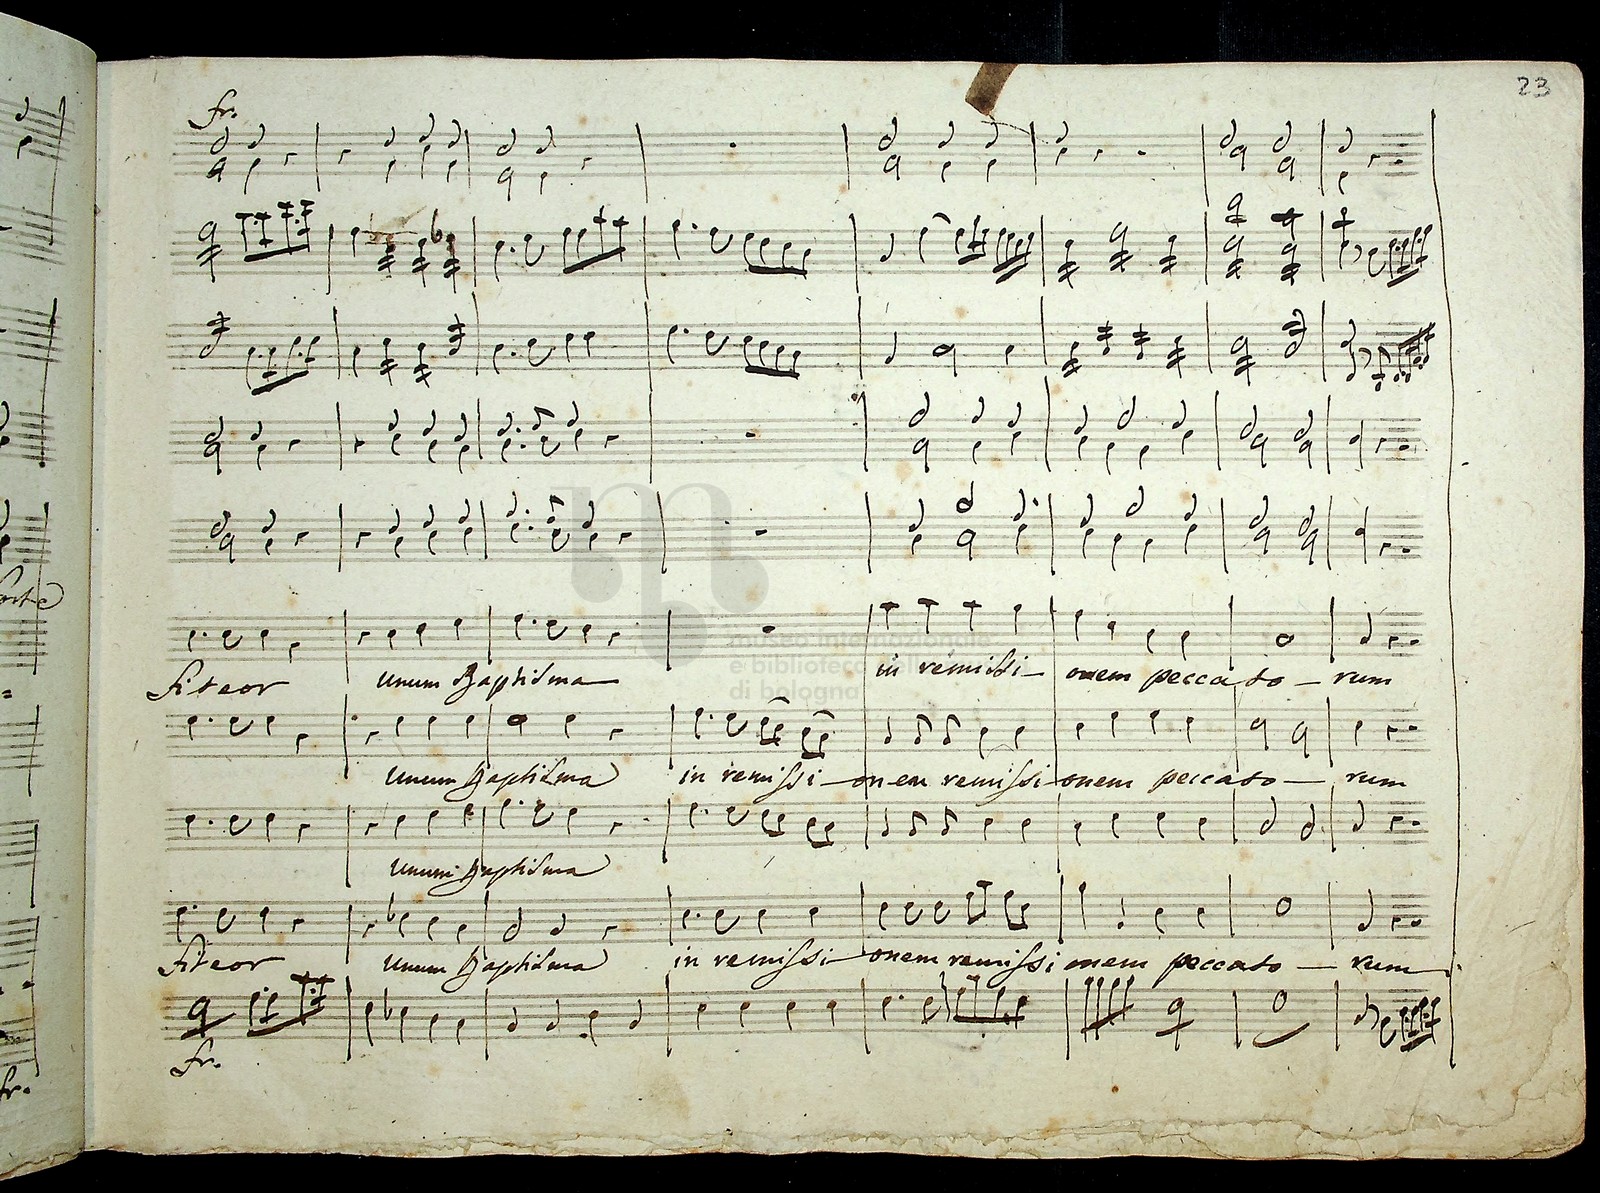 23
fr.
museo internazionale
e biblioteca della musica
di bologna
in remissi- onem pecca to - rum
fiteor unum Baptisma
unum Baptisma in remissi - onem remissi onem peccato - rum
unum Baptisma
fiteor unum Baptisma in remissi - onem remissi onem peccato - rum
fr.
fr.